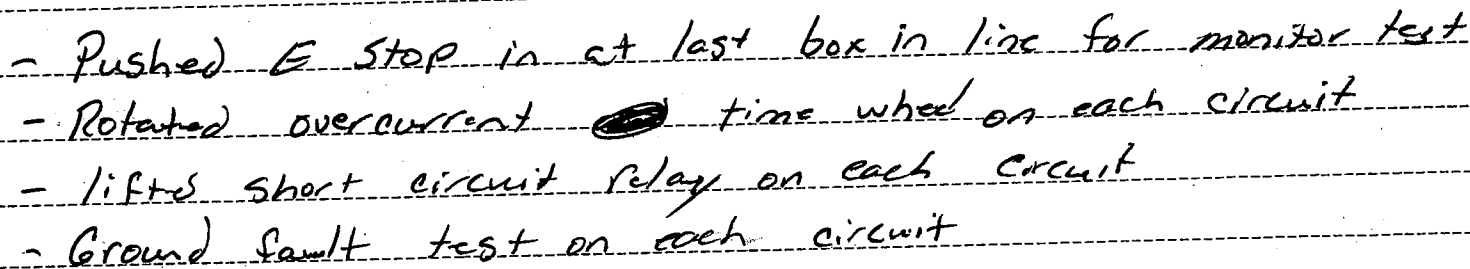 - Pushed E Stop in at last box in line for monitor test
- Rotated overcurrent time wheel on each circuit
- lifted short circuit relay on each circuit
- Ground fault test on each circuit